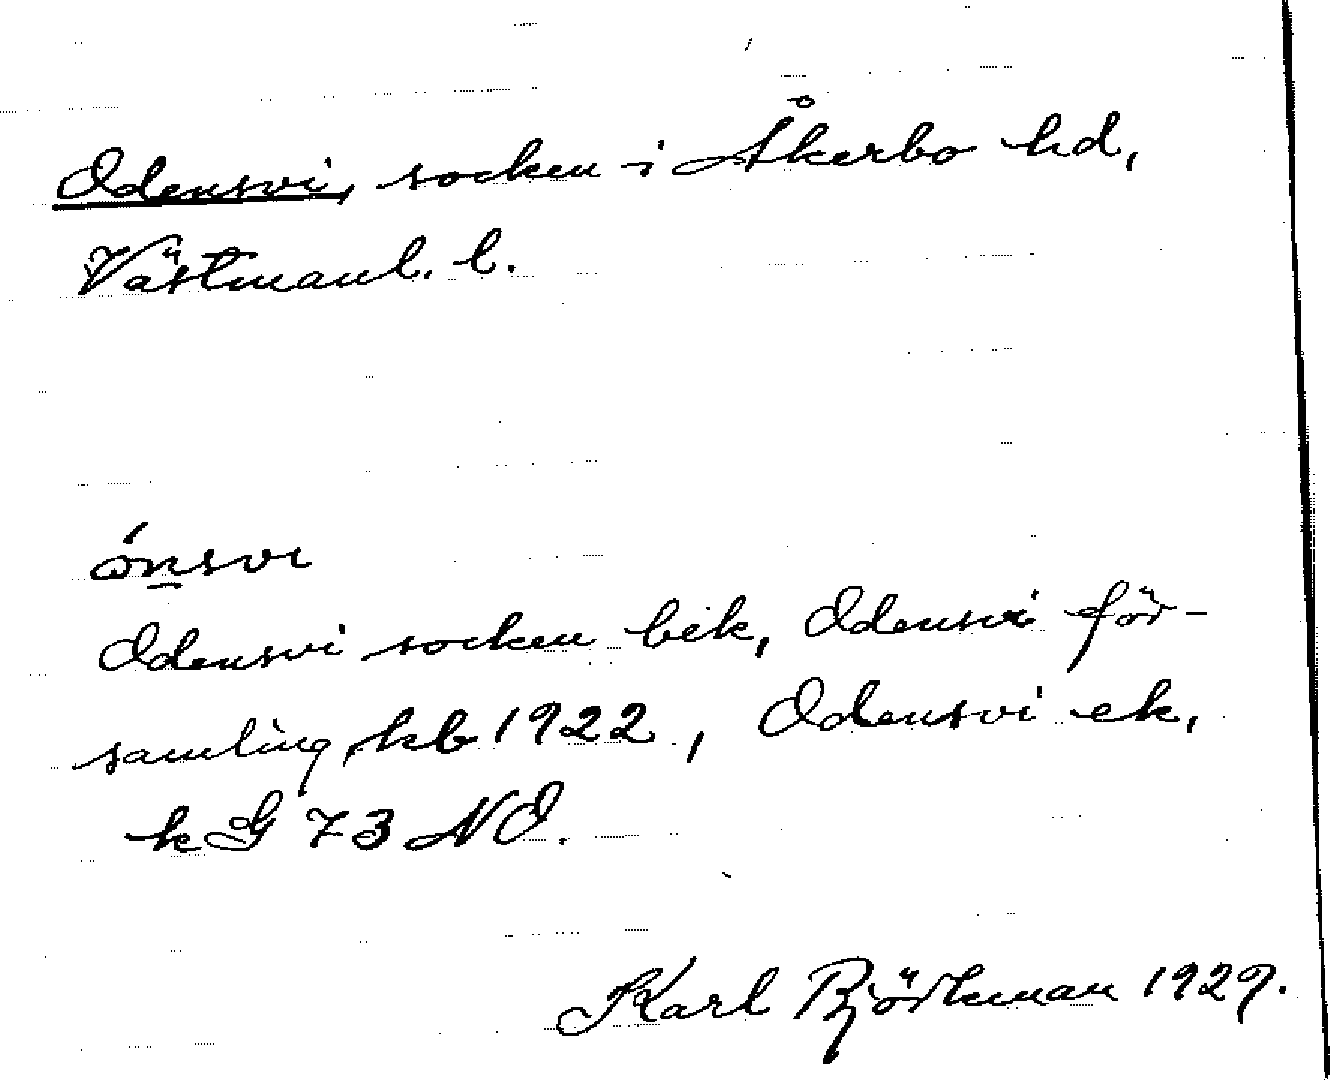 Odensvi, socken i Åkerbo hd,
Västmanl. l.
ónsvi
Odensvi socken bek, Odensvi för-
samling kb 1922, Odensvi ek,
k G 73 NO.
Karl Björkman 1929.